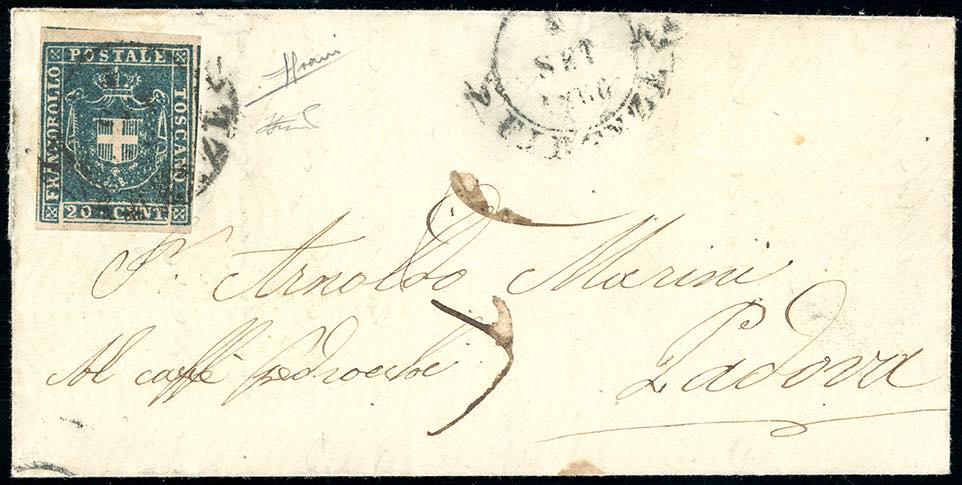 POSTALE
FRANCOBOLLO
TOSCANO
20 CENT
SET
1860
FIRENZE
5
S.r Arnoldo Marini
Al caffè Pedrocchi
Padova